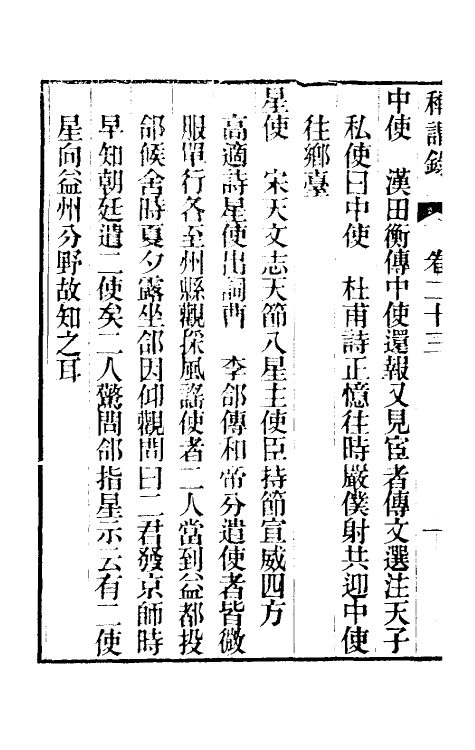 稱謂錄 卷二十三 一
中使 漢田衡傳中使還報又見宦者傳文選注天子
私使曰中使 杜甫詩正憶往時嚴僕射共迎中使
往鄉臺
星使 宋天文志天節八星主使臣持節宣威四方
高適詩星使出詞曹 李郃傳和帝分遣使者皆微
服單行各至州縣觀採風謠使者二人當到益都投
郃候舍時夏夕露坐郃因仰觀問曰二君發京師時
早知朝廷遣二使矣二人驚問郃指星示云有二使
星向益州分野故知之耳